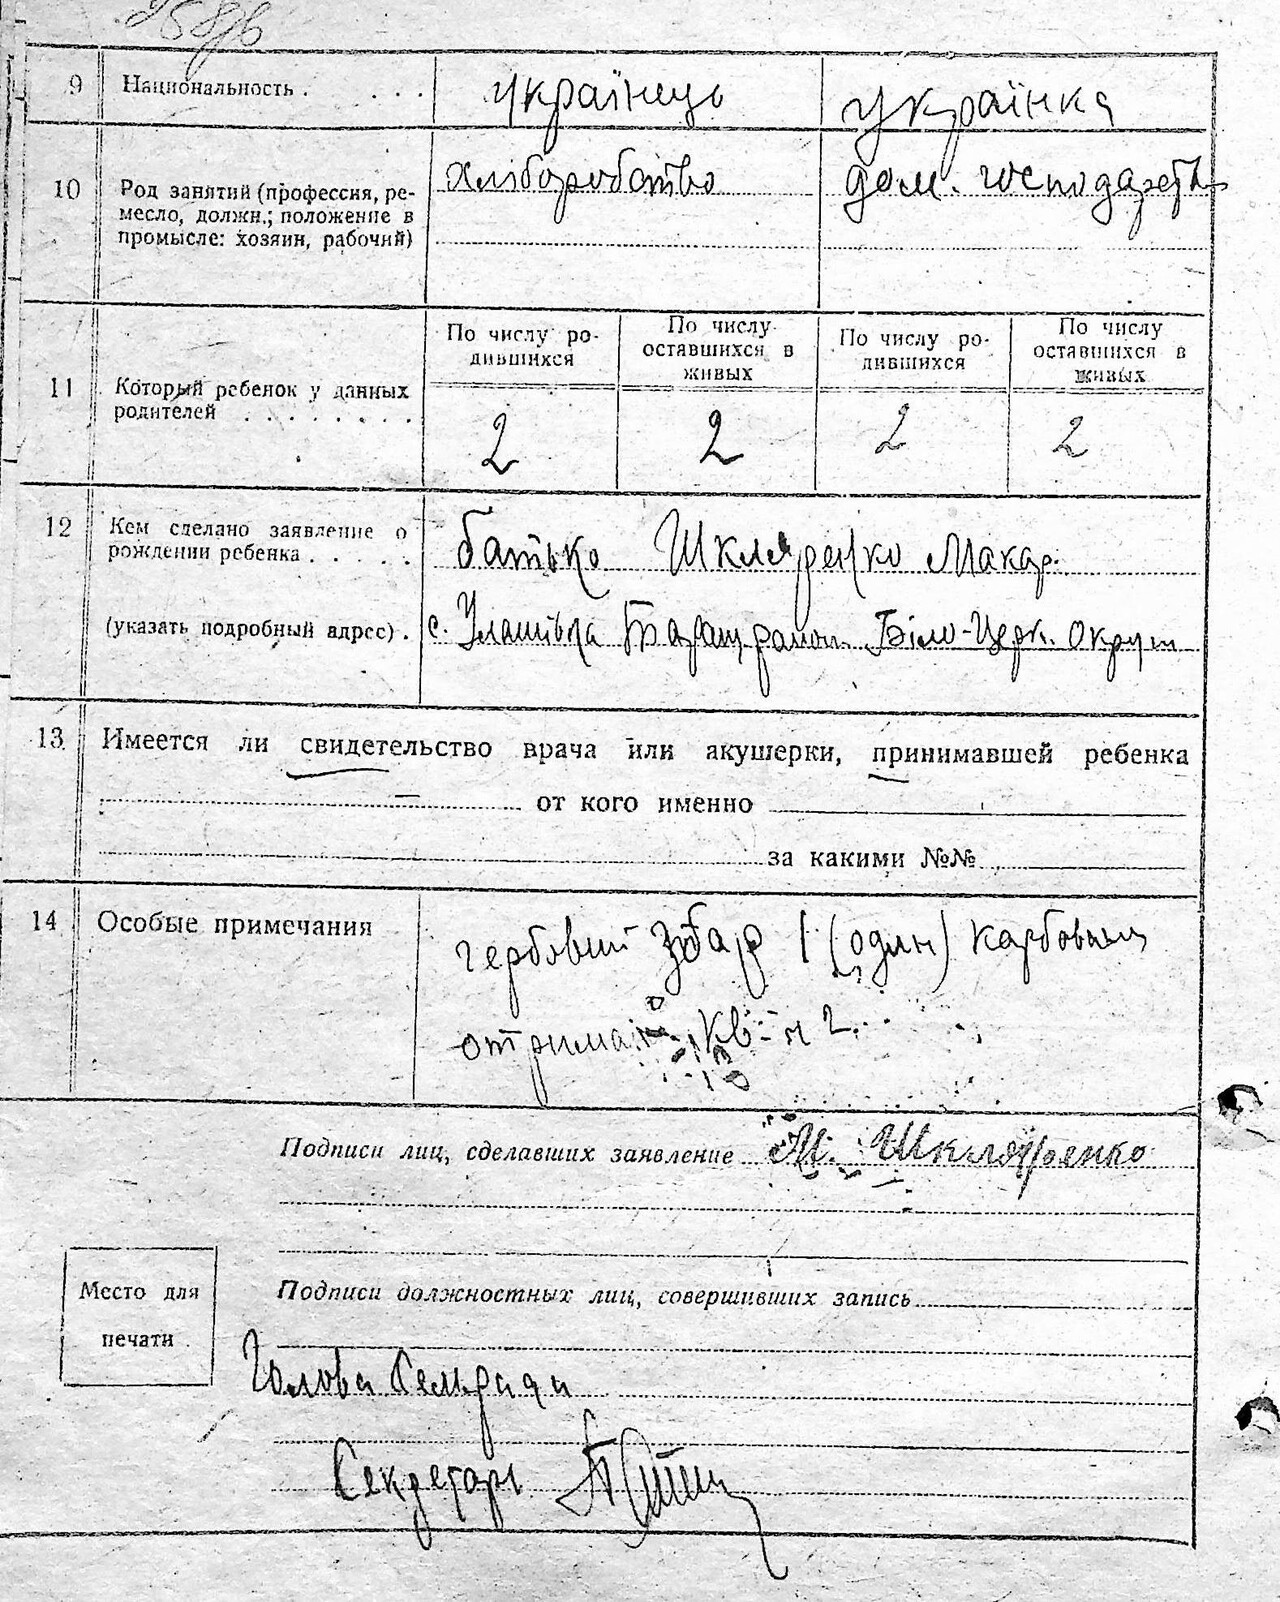 9 Национальность . . . . українець українка
10 Род занятий (профессия, ре- хліборобство дом. господарств
месло, должн.; положение в
промысле: хозяин, рабочий)
По числу ро- По числу По числу ро- По числу
дившихся оставшихся в дившихся оставшихся в
живых живых
11 Который ребенок у данных
родителей . . . . . . . . 2 2 2 2
12 Кем сделано заявление о
рождении ребенка . . . . . батько Шкляренко Макар
(указать подробный адрес) . с. Улашівка район. Біло-Церк. округи
13 Имеется ли свидетельство врача или акушерки, принимавшей ребенка
— от кого именно
за какими №№
14 Особые примечания
гербовий збір 1 (один) карбованец
отримано кв-я
Подписи лиц, сделавших заявление М. Шкляренко
Место для
печати
Подписи должностных лиц, совершивших запись
Голова Сельради
Секретарь